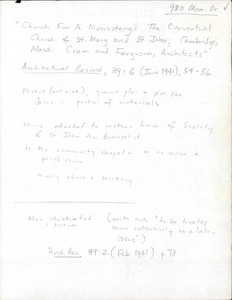 980 Mem. Dr.
"Church For A Monastery: The Conventual
Church of St. Mary and St John, Cambridge,
Mass. Cram and Ferguson, Architects"
Architectural Record, 89:6 (June 1941), 54-56
Photos (ext & int), ground plan & plan
desc. - of materials
attached to mother house of Society
of St John the Evangelist
Is the community chapel - to serve a
parish
nearby share a sanctuary
Also illustrated (with note "to be treated
more extensively in a later
issue")
Arch Rec 89:2 (Feb 1941) p. 78